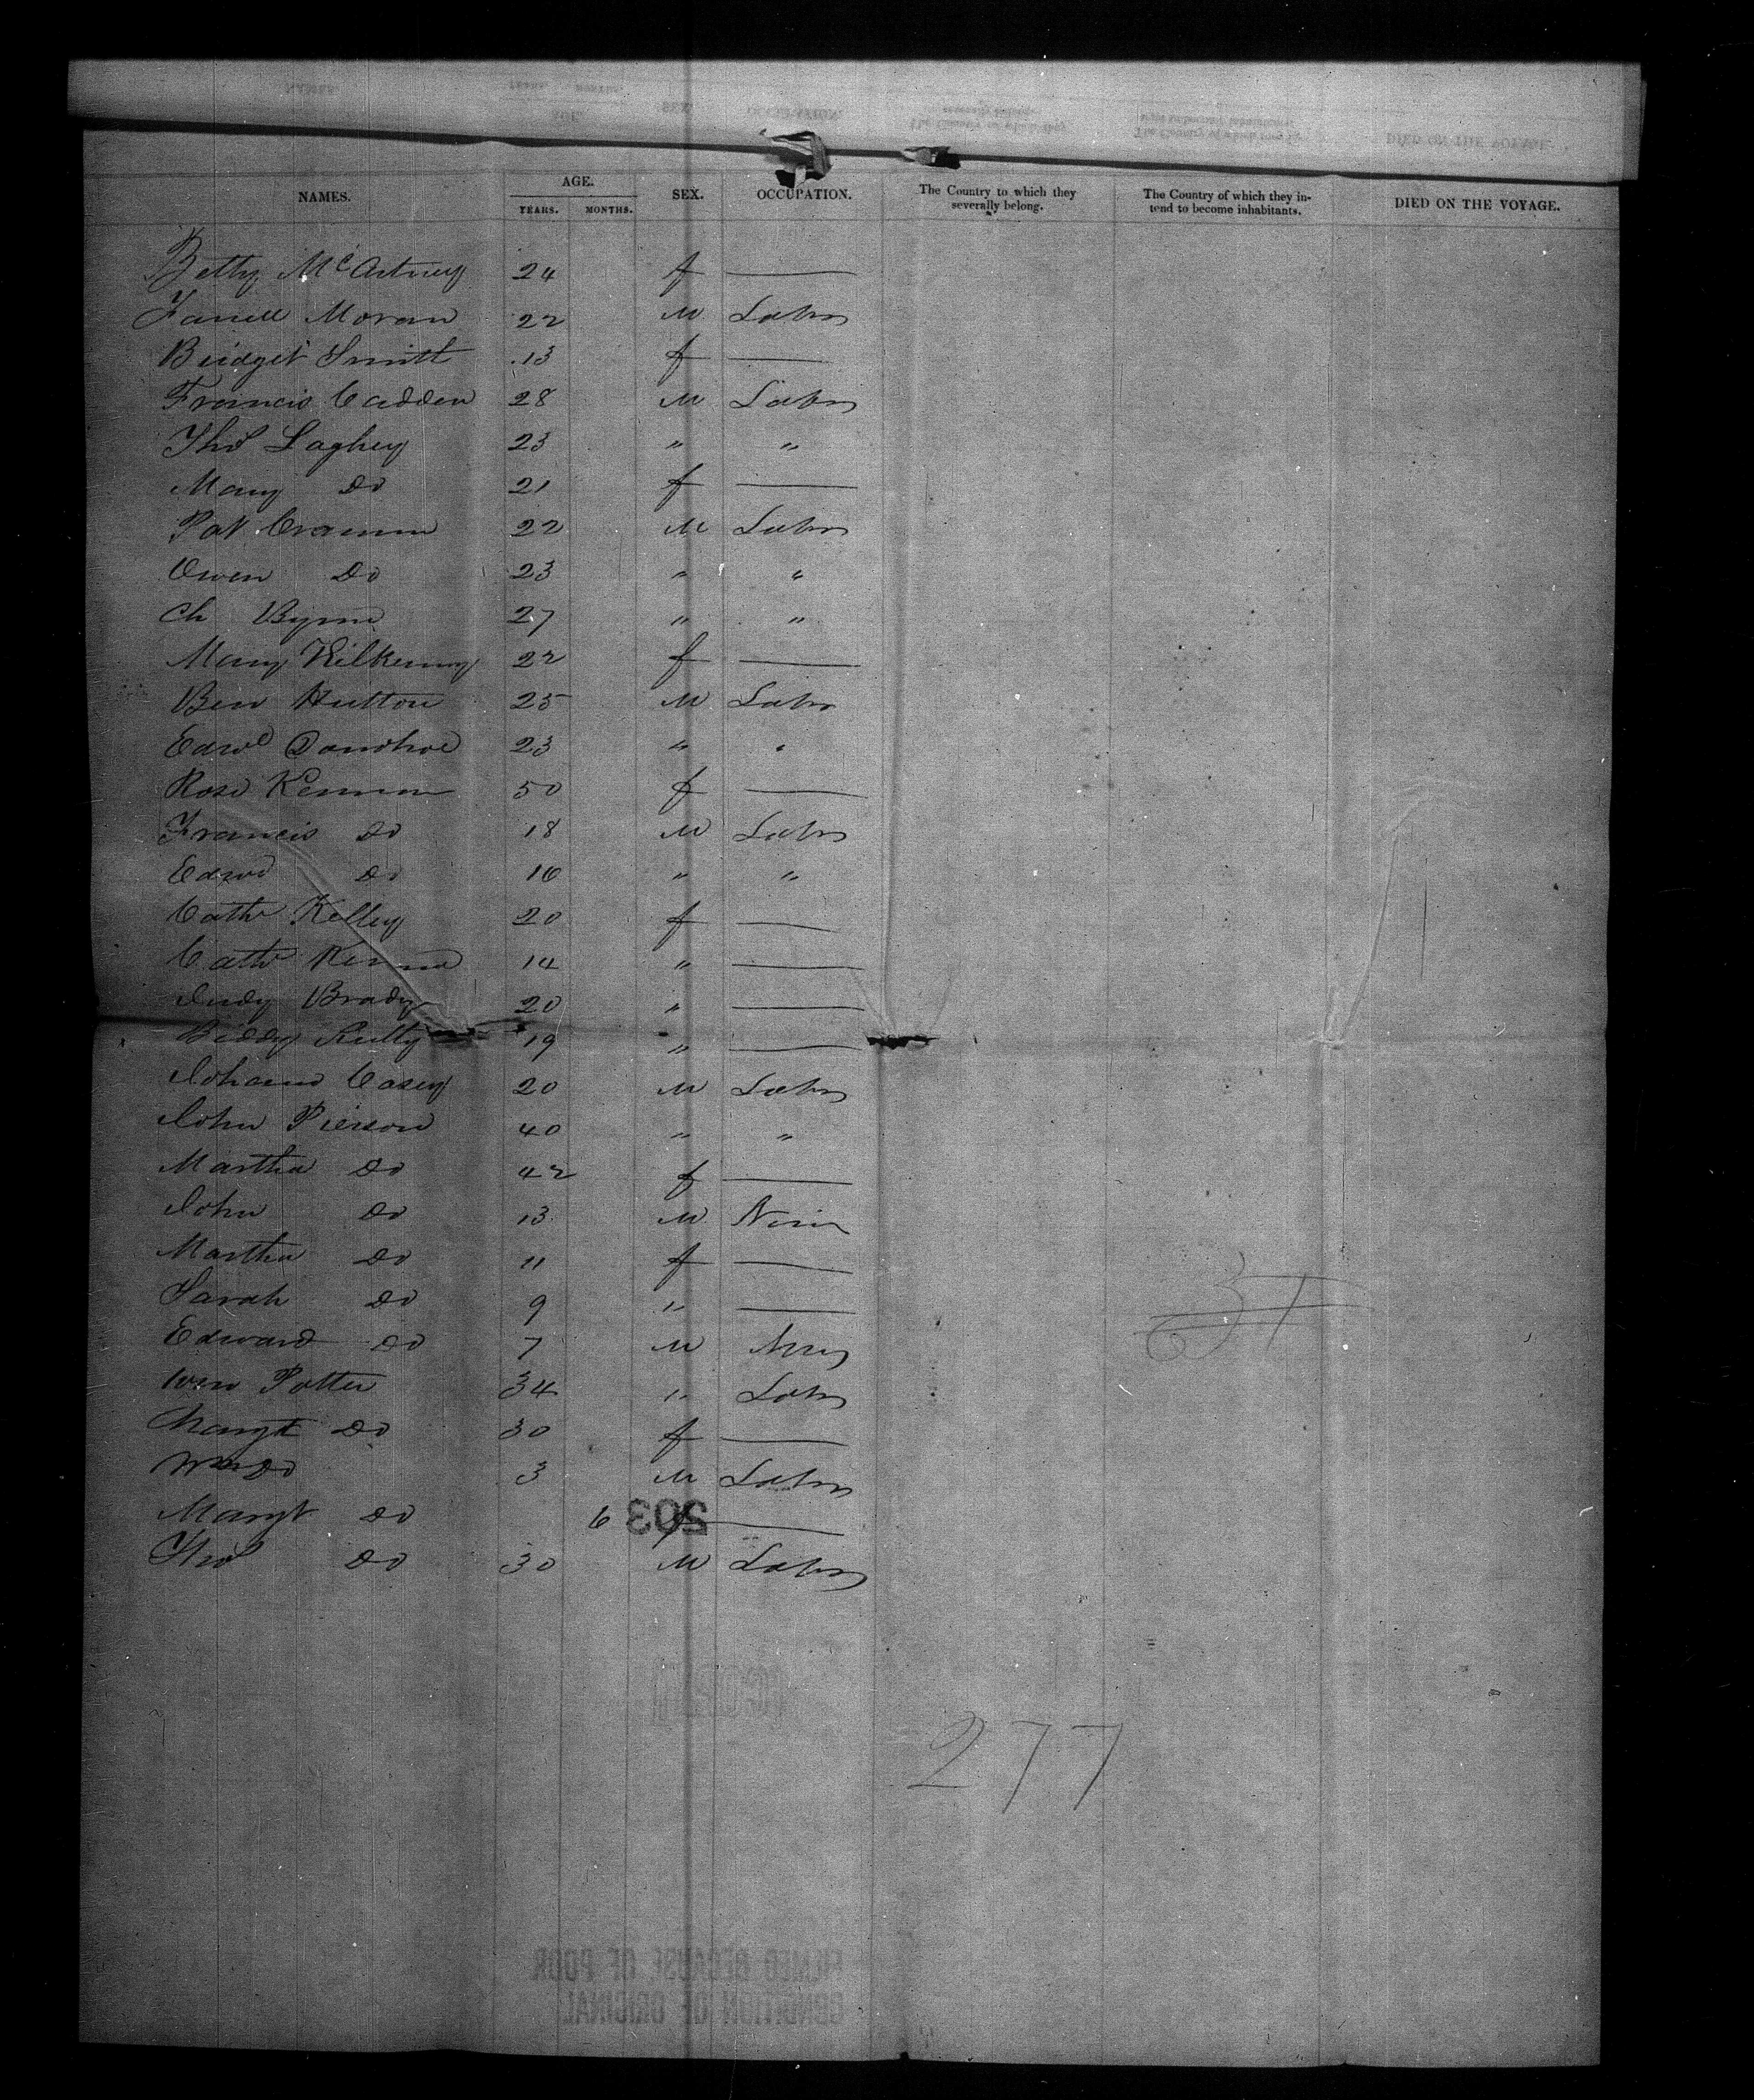 NAMES. AGE. YEARS. MONTHS. SEX. OCCUPATION. The Country to which they severally belong. The Country of which they in-tend to become inhabitants. DIED ON THE VOYAGE.
Betty McArtney 24 f
Moran 22 M Labr
Bridget Smith 13 f
Francis Cadden 28 M Labr
Thos Laghey 23 " "
Mary Do 21 f
Pat 22 M Labr
Owen Do 23 " "
Ch Byrne 27 " "
Mary Kilkenny 22 f
Ben Hutton 25 M Labr
Edwd Donohoe 23 " "
Rose 50 f
Francis Do 18 M Labr
Edwd Do 16 " "
Cath Kelley 20 f
Cath 14 "
Judy Brady 20 "
Biddy 19 "
Casey 20 M Labr
John Pierson 40 " "
Martha Do 42 f
John Do 13 M
Martha Do 11 f
Sarah Do 9 "
Edward Do 7 M
Wm Potter 34 " Labr
Margt Do 30 f
Wm Do 3 M Labr
Margt Do 6 f
203
Thos Do 30 M Labr
277
FILMED BECAUSE OF POOR
CONDITION OF ORIGINAL